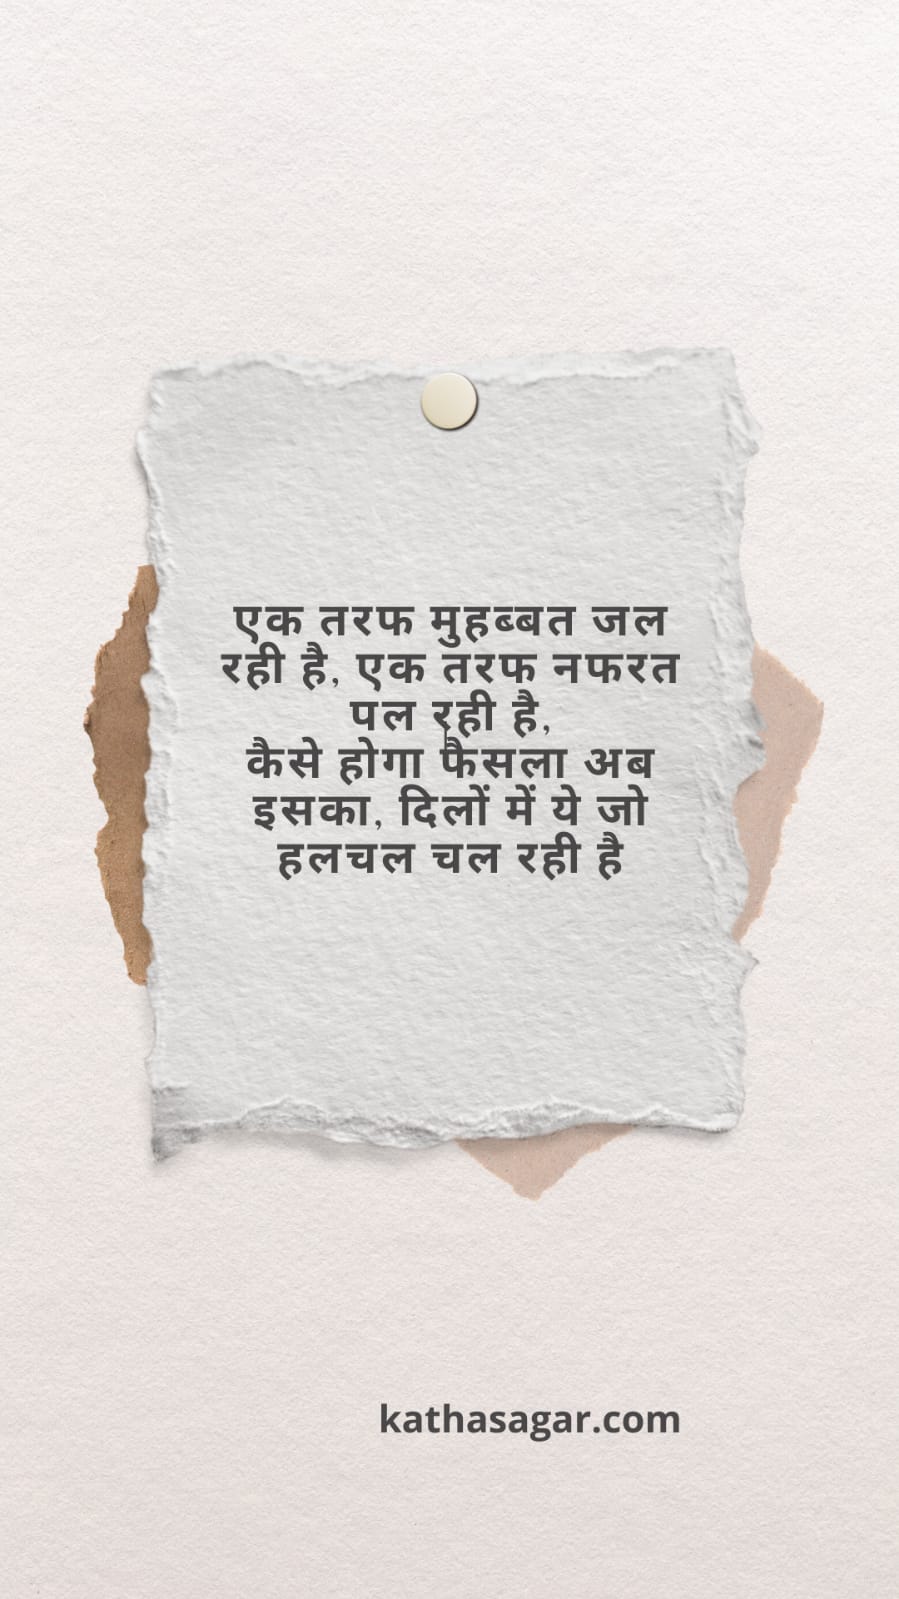 एक तरफ मुहब्बत जल
रही है, एक तरफ नफरत
पल रही है,
कैसे होगा फैसला अब
इसका, दिलों में ये जो
हलचल चल रही है
kathasagar.com